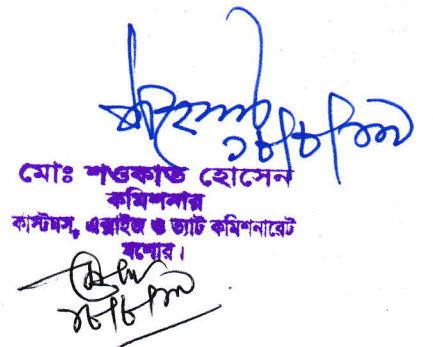 ১৮/৮/১১
মোঃ শওকাত হোসেন
কমিশনার
কাস্টমস, এক্সাইজ ও ভ্যাট কমিশনারেট
যশোর।